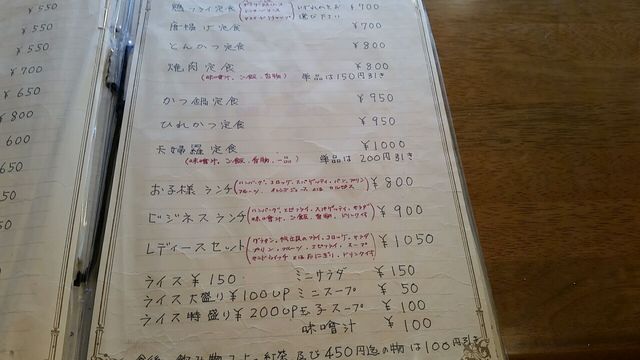 ¥550
¥550
¥550
¥700
¥650
¥800
600
650
¥850
鶏フライ定食 いずれかをお選び下さい ¥700
唐揚げ定食 ¥700
とんかつ定食 ¥800
焼肉定食 ¥800
(味噌汁、ご飯、香物) 単品は150円引き
かつ鍋定食 ¥950
ひれかつ定食 ¥950
天婦羅定食 ¥1000
(味噌汁、ご飯、香物、一品) 単品は200円引き
お子様ランチ (ハンバーグ、コロッケ、スパゲルティ、パン、プリン ¥800
フルーツ、オレンジジュース又は カルピス)
ビジネスランチ (ハンバーグ、エビフライ、スパゲルティ、サラダ ¥900
味噌汁、ご飯、香物、ドリンク付)
レディースセット (グラタン、帆立貝のフライ、コロッケ、サラダ ¥1050
プリン、フルーツ、エビフライ、スープ
サンドウィッチ又はおにぎり、ドリンク付)
ライス ¥150 ミニサラダ ¥150
ライス大盛り¥100UP ミニスープ ¥50
ライス特盛り¥200UP 玉子スープ ¥100
味噌汁 ¥100
食後、飲み物コーヒー、紅茶、及び450円迄の物は100円引き